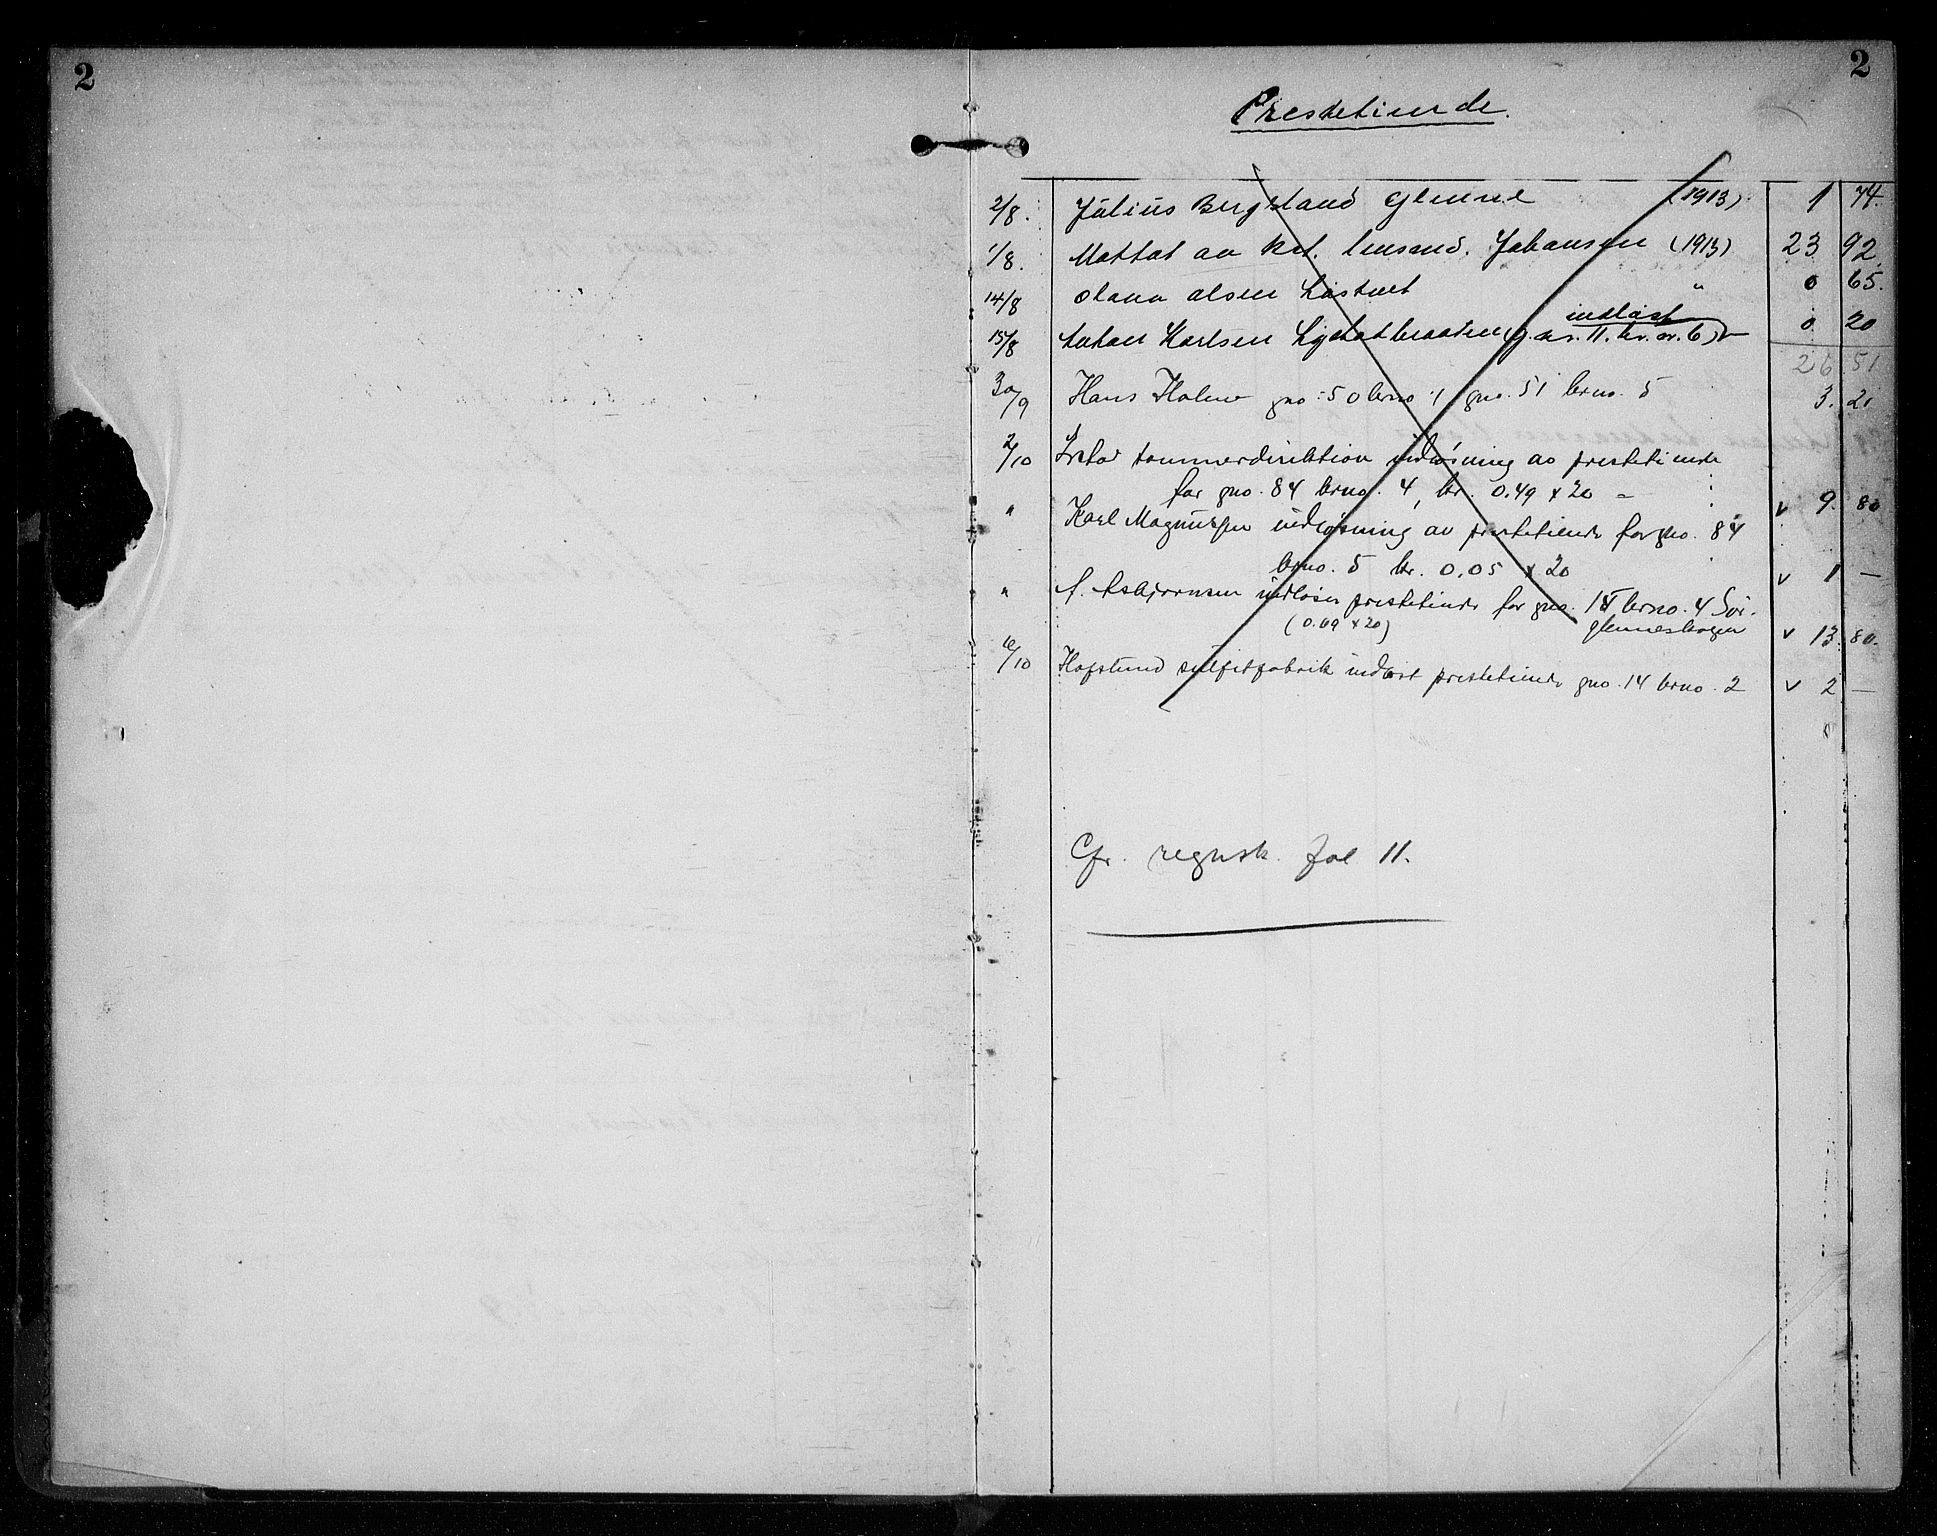 2
2
Prestetiende.
2/8. Julius Bergland Glenne (1913) 1 74.
1/8. Mottat av kst. lensmd. Johansen (1913) 23 92.
14/8 Olava Olsen Løstuet " 0 65.
indløst
15/8 Anton Karlsen (g.nr. 11. br.nr. 6) 0. 20
26 51
30/9 Hans Holme gno. 50 brno. 1 gno. 51 brno. 5 3. 21
2/10 tømmerdirektion indløsning av prestetiende
for gno. 84 brno. 4, kr. 0.49 x 20 = v 9. 80
" Karl Magnussen indløsning av prestetiende for gno. 84
brno. 5 kr. 0.05 x 20 v 1 —
" A. Asbjørnsen indløser prestetiende for gno. 15 brno. 4 Sør-
(0.69 x 20) glenneskogen v 13. 80.
6/10 Hafslund sulfitfabrik indløst prestetiende gno. 14 brno. 2 v 2 —
Cfr. regnsk. fol 11.